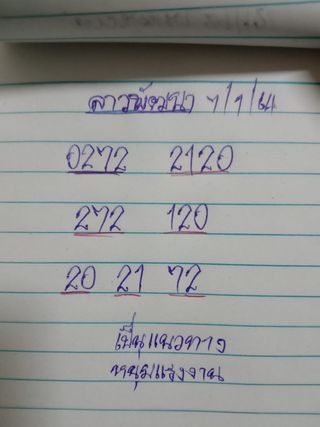 ลาวพัฒนา 7/7/64
0272 2120
272 120
20 21 72
เป็นแนวทาง
หนุ่มแรงงาน